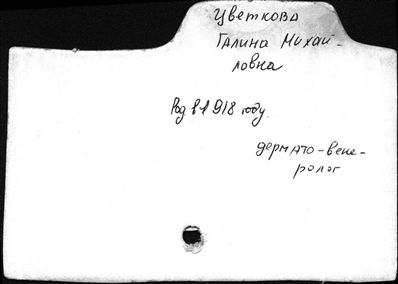 Цветкова
Галина Михай-
ловна
Род в 1918 году.
дермато-вене-
ролог